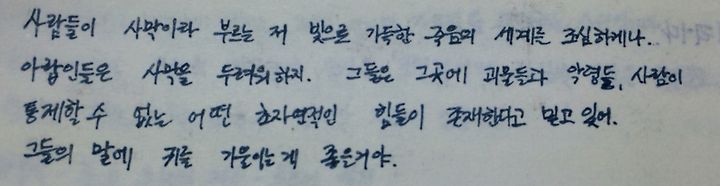 사람들이 사막이라 부르는 저 빛으로 가득한 죽음의 세계를 조심하게나.
아랍인들은 사막을 두려워하지. 그들은 그곳에 괴물들과 악령들, 사람이
통제할 수 없는 어떤 초자연적인 힘들이 존재한다고 믿고 있어.
그들의 말에 귀를 기울이는게 좋은거야.